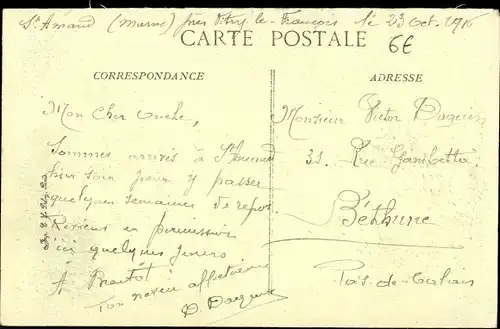 St Amand (Marne) près Vitry-le-François le 23 Oct. 1916
CARTE POSTALE
6€
CORRESPONDANCE
ADRESSE
Mon Cher Oncle,
Sommes arrivés à St Amand
hier soir pour y passer
quelques semaines de repos.
Reviens en permission
d'ici quelques jours
A Bientôt
Ton neveu affectueux
D. Daquin
Monsieur Victor Daquin
31. Rue Gambetta
Béthune
Pas-de-Calais